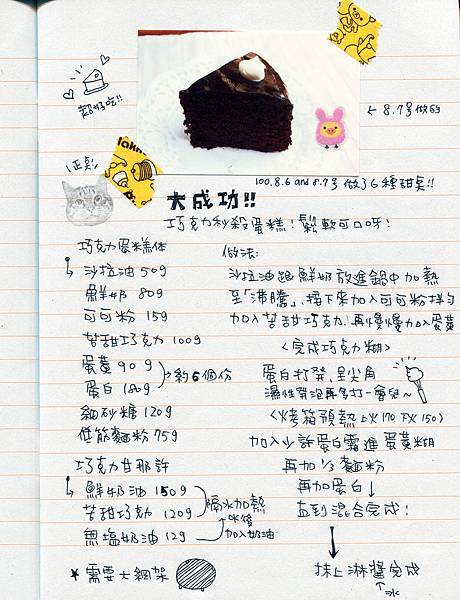 超好吃!!
← 8.7号做的
100.8.6 and 8.7号 做了6種甜點!!
正點!
大成功!!
巧克力秒殺蛋糕!鬆軟可口呀!
巧克力蛋糕体
沙拉油 50g
鮮奶 80g
可可粉 15g
苦甜巧克力 100g
蛋黃 90g
蛋白 180g
→約6個份
細砂糖 120g
低筋麵粉 75g
巧克力甘那許
鮮奶油 150g
苦甜巧克力 120g
隔水加熱
無塩奶油 12g
加入奶油
★需要大網架
做法:
沙拉油跟鮮奶放進鍋中加熱
至「沸騰」,接下來加入可可粉拌勻
加入苦甜巧克力!再慢慢加入蛋黃
<完成巧克力糊>
蛋白打發,呈尖角
濕性發泡再多打一會兒~
<烤箱預熱 上火170 下火150>
加入少許蛋白霜進蛋黃糊
再加1/3麵粉
再加蛋白↓
直到混合完成!
抹上淋醬完成
↑冰